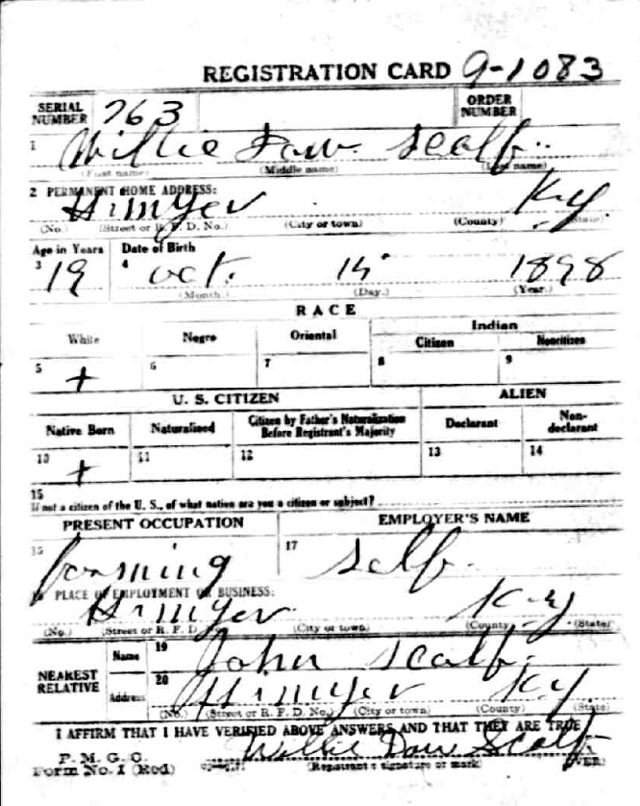 REGISTRATION CARD 9-1083
SERIAL NUMBER 763 ORDER NUMBER
1 Willie Daw Scalf
(First name) (Middle name) (Last name)
2 PERMANENT HOME ADDRESS:
Himyer Ky.
(No.) (Street or R. F. D. No.) (City or town) (County) (State)
Age in Years Date of Birth
3 19 4 Oct. 15 1898
(Month.) (Day.) (Year.)
RACE
White Negro Oriental Indian
Citizen Noncitizen
5 + 6 7 8 9
U. S. CITIZEN ALIEN
Native Born Naturalized Citizen by Father's Naturalization Before Registrant's Majority Declarant Non-declarant
10 + 11 12 13 14
15
If not a citizen of the U. S., of what nation are you a citizen or subject?
PRESENT OCCUPATION EMPLOYER'S NAME
16 farming 17 self
18 PLACE OF EMPLOYMENT OR BUSINESS:
Himyer Ky
(No.) (Street or R. F. D.) (City or town) (County) (State)
NEAREST RELATIVE Name 19 John Scalf.
Address 20 Himyer Ky.
(No.) (Street or R. F. D. No.) (City or town) (County) (State)
I AFFIRM THAT I HAVE VERIFIED ABOVE ANSWERS AND THAT THEY ARE TRUE
P. M. G. O.
Form No. 1 (Red) Willie Daw Scalf
(Registrant's signature or mark) (OVER)